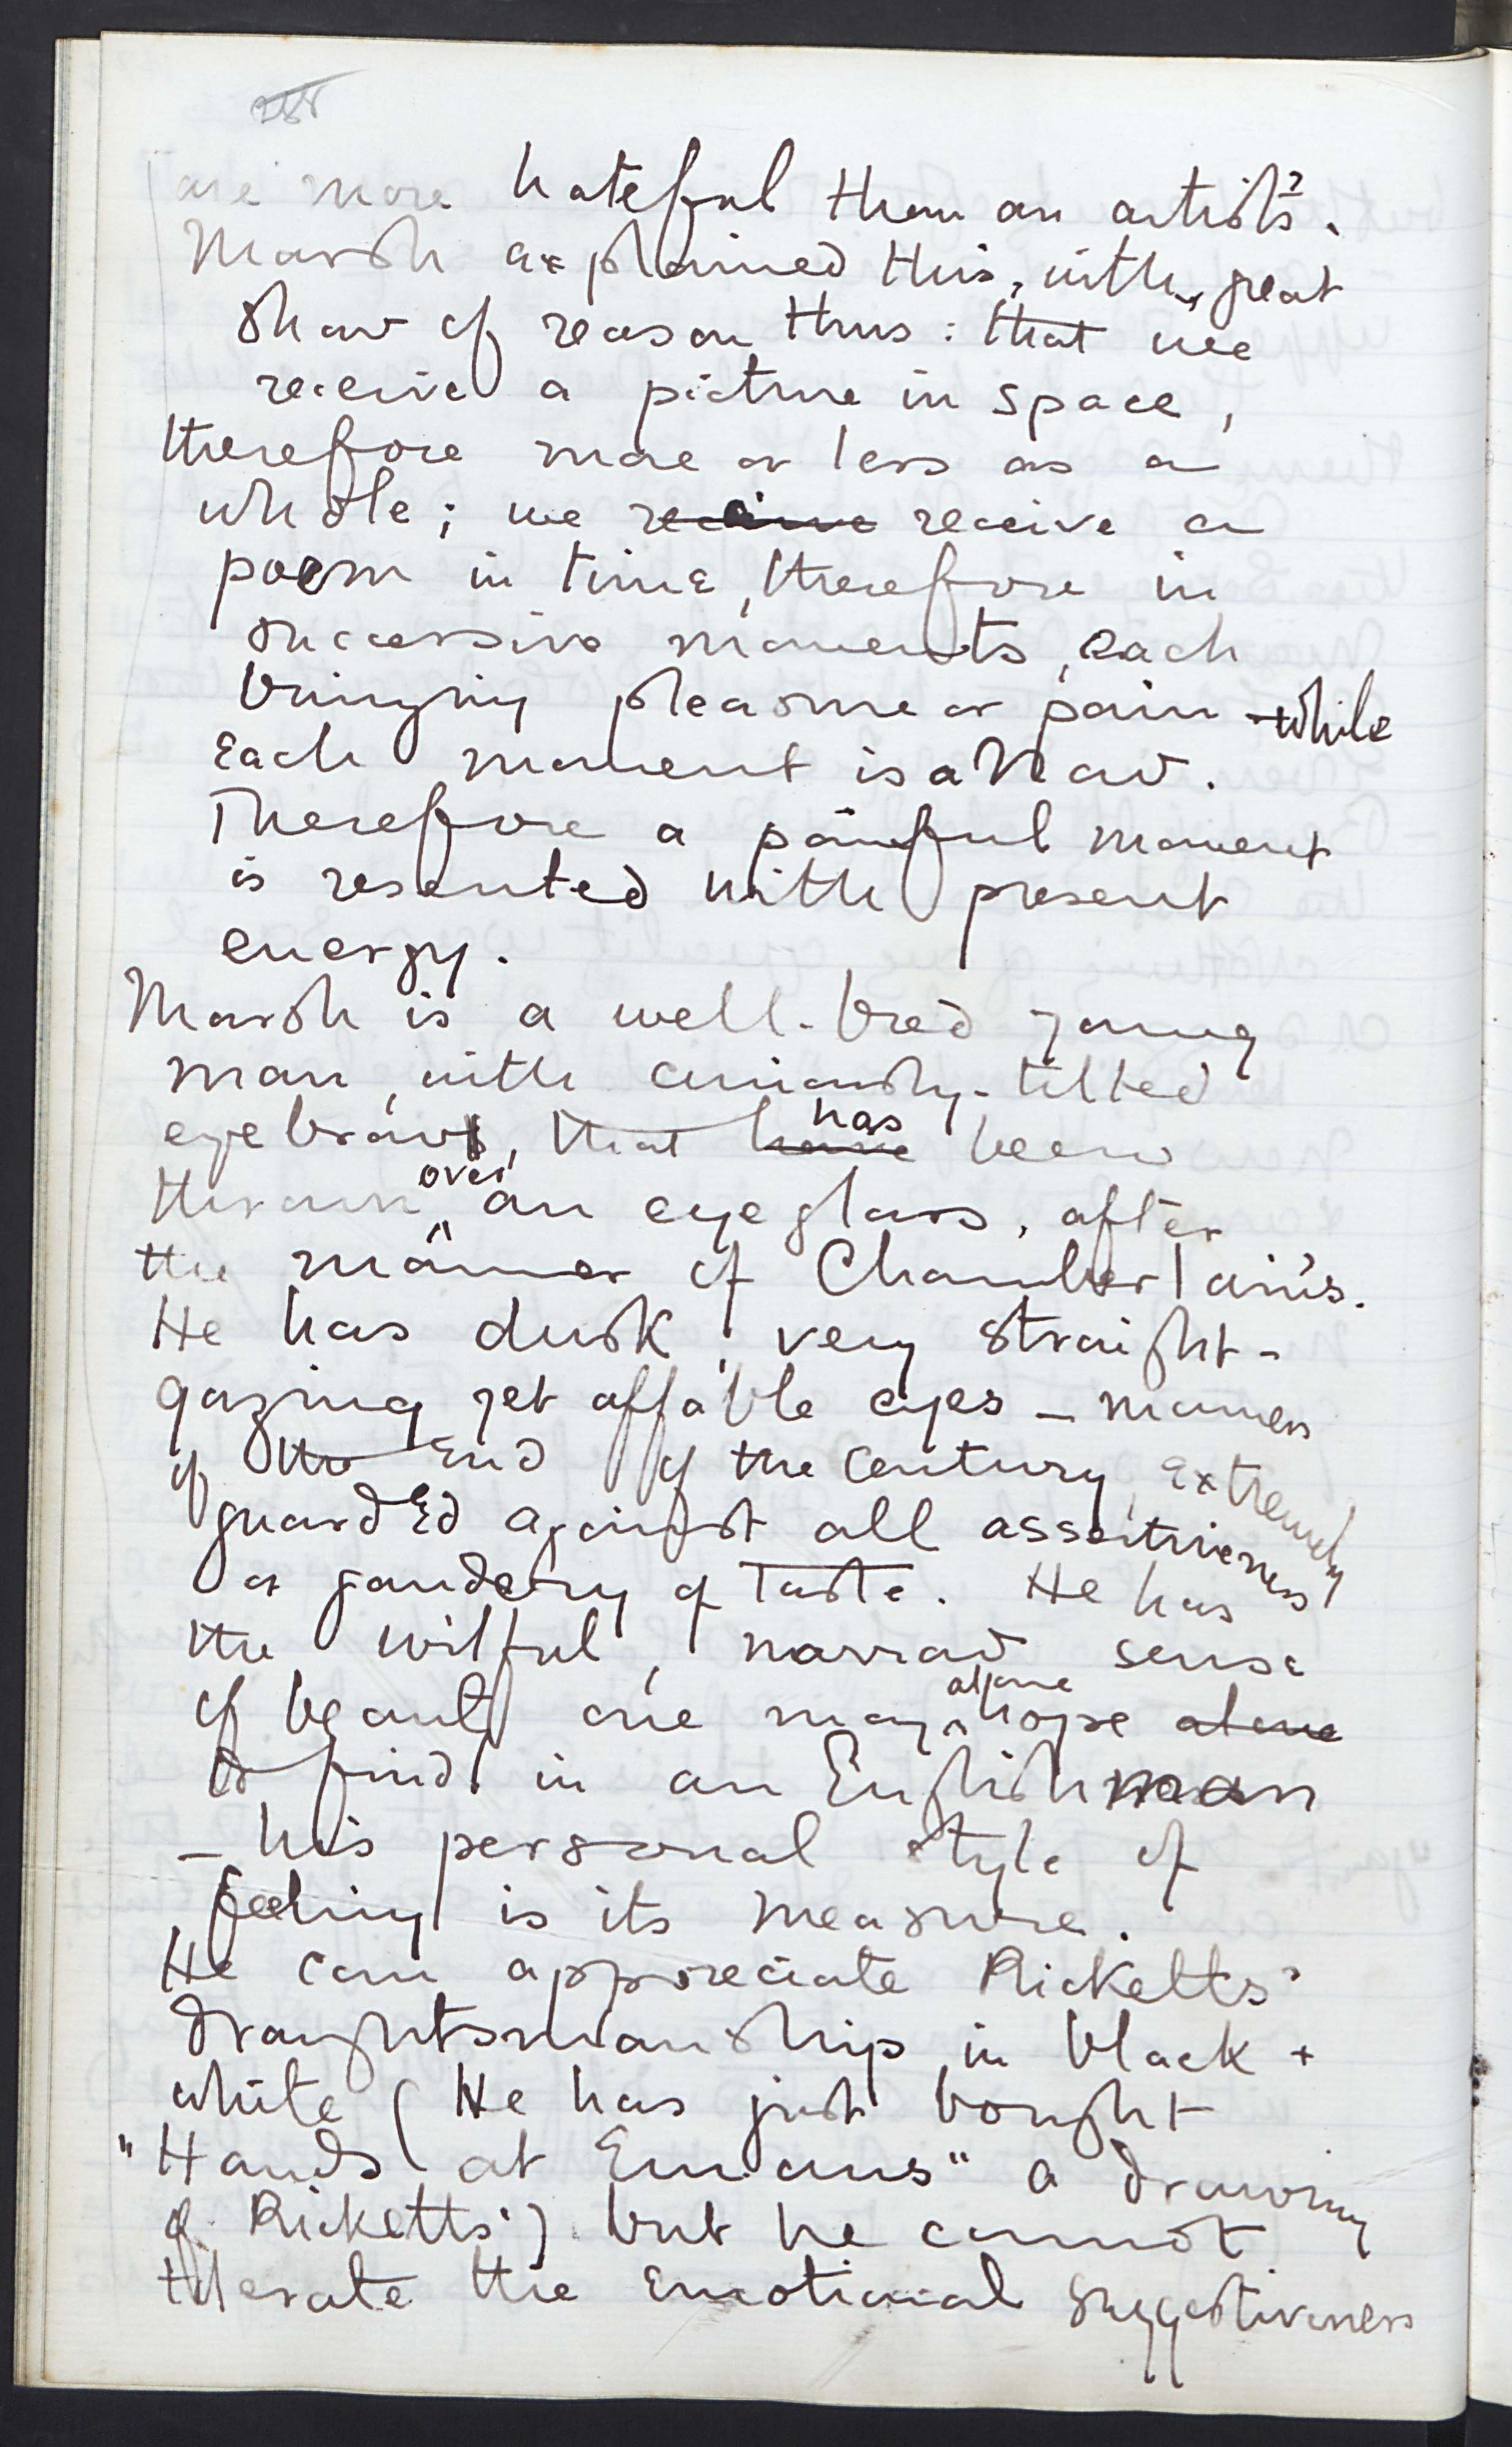 are more hateful than an artist's.
Marsh explained this, with great
show of reason thus: that we
receive a picture in space,
therefore more or less as a
whole; we receive receive a
poem in time, therefore in
successive moments, each
bringing pleasure or pain - while
Each moment is a Now.
Therefore a painful moment
is resented with present
energy.
Marsh is a well-bred young
man, with curiously-tilted
eyebrow, that have has been
thrown over an eyeglass, after
the manner of Chamberlain's.
He has dusk, very straight-
gazing yet affable eyes – manners
of the End of the Century, extremely
guarded against all assertiveness
or gaudery of Taste. He has
the wilful, narrow sense
of beauty one may alone hope alone
to find in an Englishman
– his personal style of
feeling is its measure.
He can appreciate Ricketts'
draughtsmanship in black +
white (He has just bought
"Hands at Emmaus" a drawing
of Ricketts') but he cannot
tolerate the emotional suggestiveness